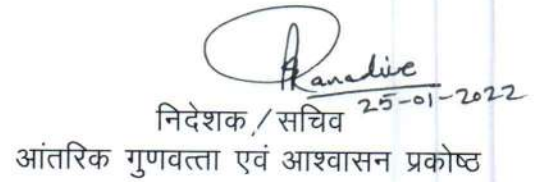 Ranadive
25-01-2022
निदेशक/सचिव
आंतरिक गुणवत्ता एवं आश्वासन प्रकोष्ठ